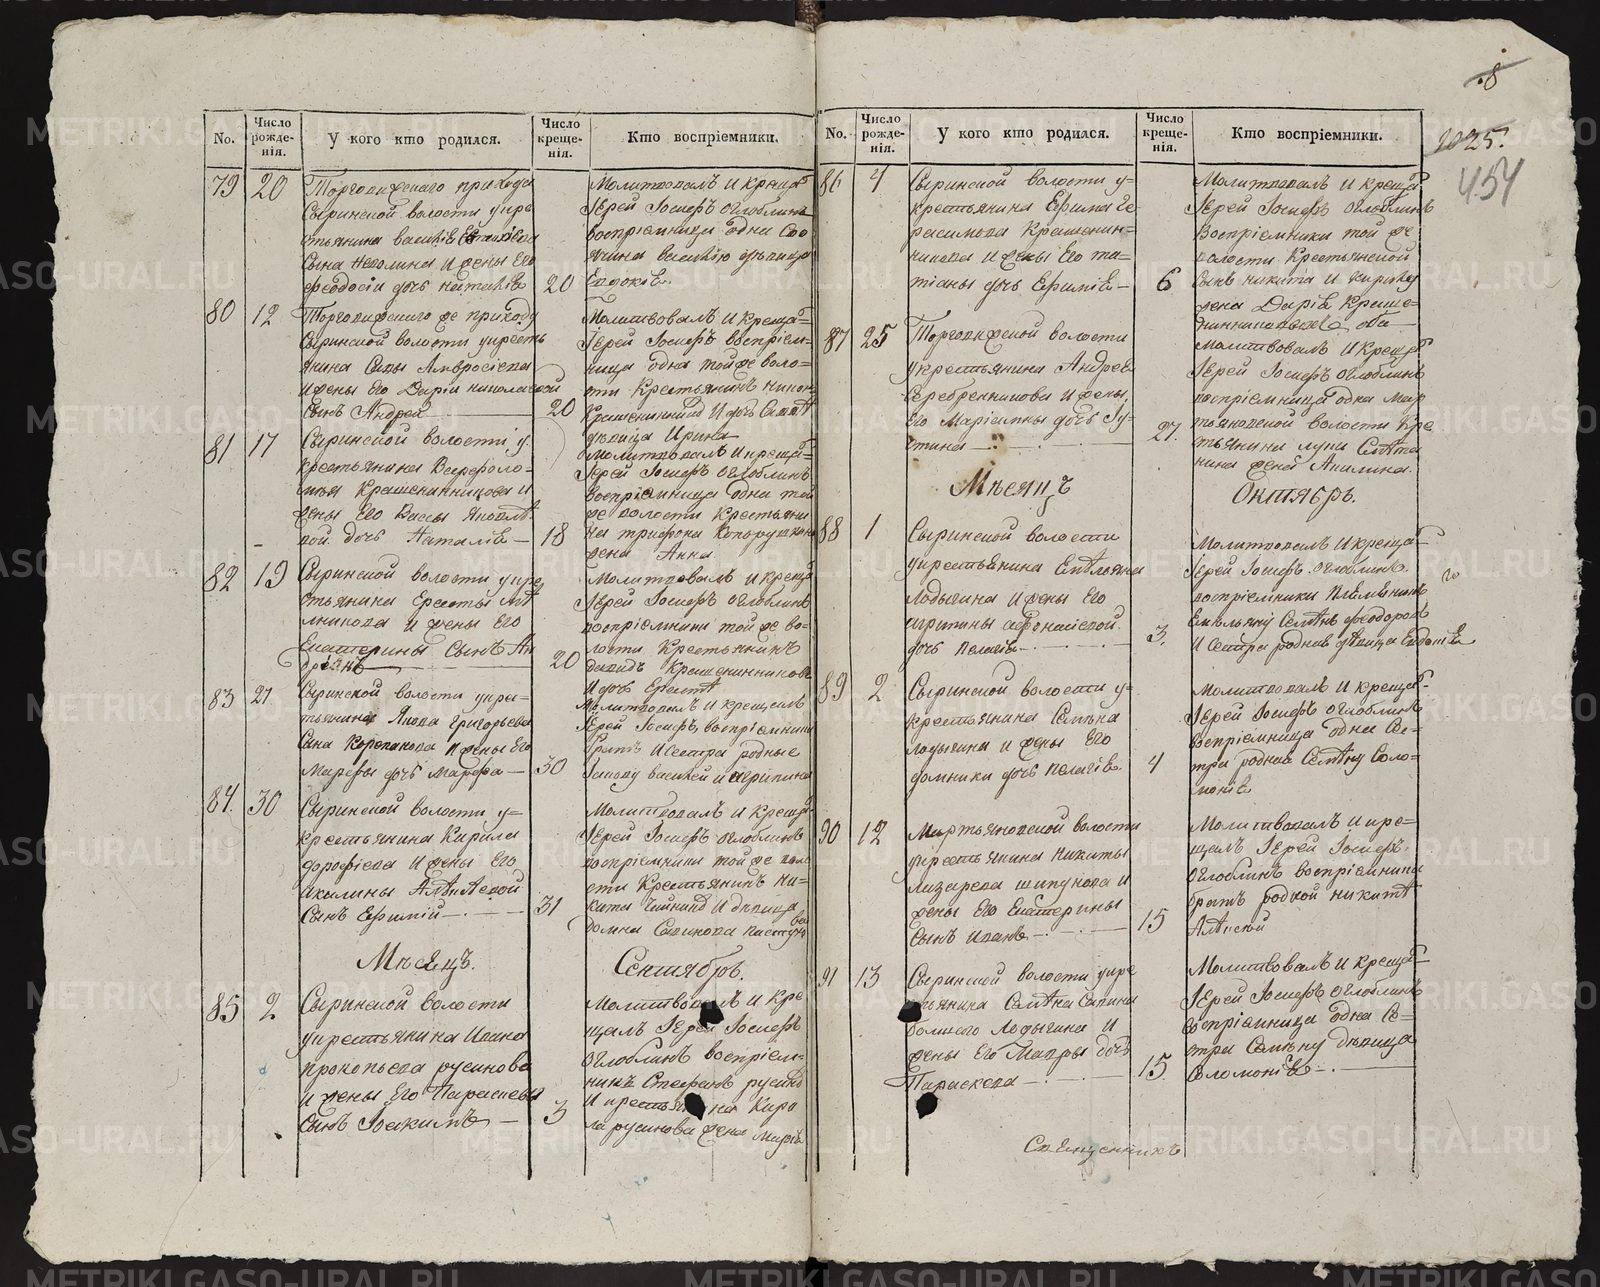 8
2025.
454
No.
Число рожде-нія.
У кого кто родился.
Число креще-нія.
Кто воспріемники.
79 20
Сыринской волости у кре
стьянина
сына и жены его
феодосіи дочь наталія 20
Молитвовалъ и крещалъ
Іерей Іосифъ Оглоблинъ
воспріемница одна
Евдокія
80 12
Сыринской волости у кресть
янина Саввы Амвросіева
и жены его Даріи николаевой
сынъ Андрей 20
Молитвовалъ и креща=
Іерей Іосифъ воспріем=
ница одна той же воло=
сти крестьянинъ
девица Ирина
81 17
Сыринской волости у
крестьянина Варфоло=
мея Крашенинникова и
жены его Вассы Яковле
вой дочь Наталія 18
Молитвовалъ и креща=
Іерей Іосифъ Оглоблинъ
воспріемница одна той
же волости крестьяни
на трифона
жена Анна
82 19
Сыринской волости у кре
стьянина
и жены его
Екатерины сынъ Ан
дреянъ 20
Молитвовалъ и креща
Іерей Іосифъ Оглоблинъ
воспріемники той же во=
лости крестьянинъ
давидъ Крашенинниковъ
и дочь
83 21
Сыринской волости у кре=
тьянина Якова григорьева
сына Корепанова и жены его
Марфы дочь Марфа 30
Молитвовалъ и крещалъ
Іерей Іосифъ воспріемники
братъ и сестра родные
василей и агрипина
84. 30
Сыринской волости у=
крестьянина Кирила
дорофеева и жены его
акилины Алексеевой
сынъ Ефимій 31
Молитвовалъ и креща
Іерей Іосифъ Оглоблинъ
воспріемники той же воло
сти крестьянинъ ни=
кита и девица
домна
Месяцъ. Сентябрь.
85 2
Сыринской волости
у крестьянина Ивана
прокопьева русинова
и жены его Параскевы
сынъ Іоакимъ 3
Молитвовалъ и кре
щалъ Іерей Іосифъ
Оглоблинъ воспріем=
никъ Стефанъ русино
и крестьянина Киро
ла русинова жена Марія
No.
Число рожде-нія.
У кого кто родился.
Число креще-нія.
Кто воспріемники.
86 4
Сыринской волости у=
крестьянина Ефима ге
расимова Крашенин=
никова и жены его та=
тіаны дочь Ефимія 6
Молитвовалъ и креща
Іерей Іосифъ Оглоблинъ
воспріемники той же
волости крестьянской
сынъ никита и
жена Дарія Краше=
оба
87 25
у крестьянина Андрея
Серебренникова и жены
его Маріамны дочь Іу
стина 27.
Молитвовалъ и креща
Іерей Іосифъ Оглоблинъ
воспріемница одна мар
тьяновской волости кре
стьянина
жена Акилина.
Месяцъ Октябрь.
88 1
Сыринской волости
у крестьянина Емельяна
Лодыгина и жены его
агрипины афонасіевой
дочь Пелагія 3.
Молитвовалъ и креща
Іерей Іосифъ Оглоблинъ
воспріемники племянникъ
Емельяну Семенъ феодоровъ
и сестра родная девица Евдокія
89 2
Сыринской волости у=
крестьянина Семена
лодыгина и жены его
домники дочь Пелагія 4
Молитвовалъ и креща
Іерей Іосифъ Оглоблинъ
воспріемница одна се=
стра родная Семену Соло=
монія
90 12
Мартьяновской волости
у крестьянина Никиты
лазарева шипунова и
жены его Екатерины
сынъ Иванъ 15
Молитвовалъ и кре=
щалъ Іерей Іосифъ
Оглоблинъ воспріемники
братъ родной никите
Алексей
91 13
Сыринской волости у кре
стьянина Семена
Лодыгина и
жены его Мавры дочь
Параскева 15.
Молитвовалъ и креща
Іерей Іосифъ Оглоблинъ
воспріемница одна се=
стра Семену девица
Соломонія
Священникъ